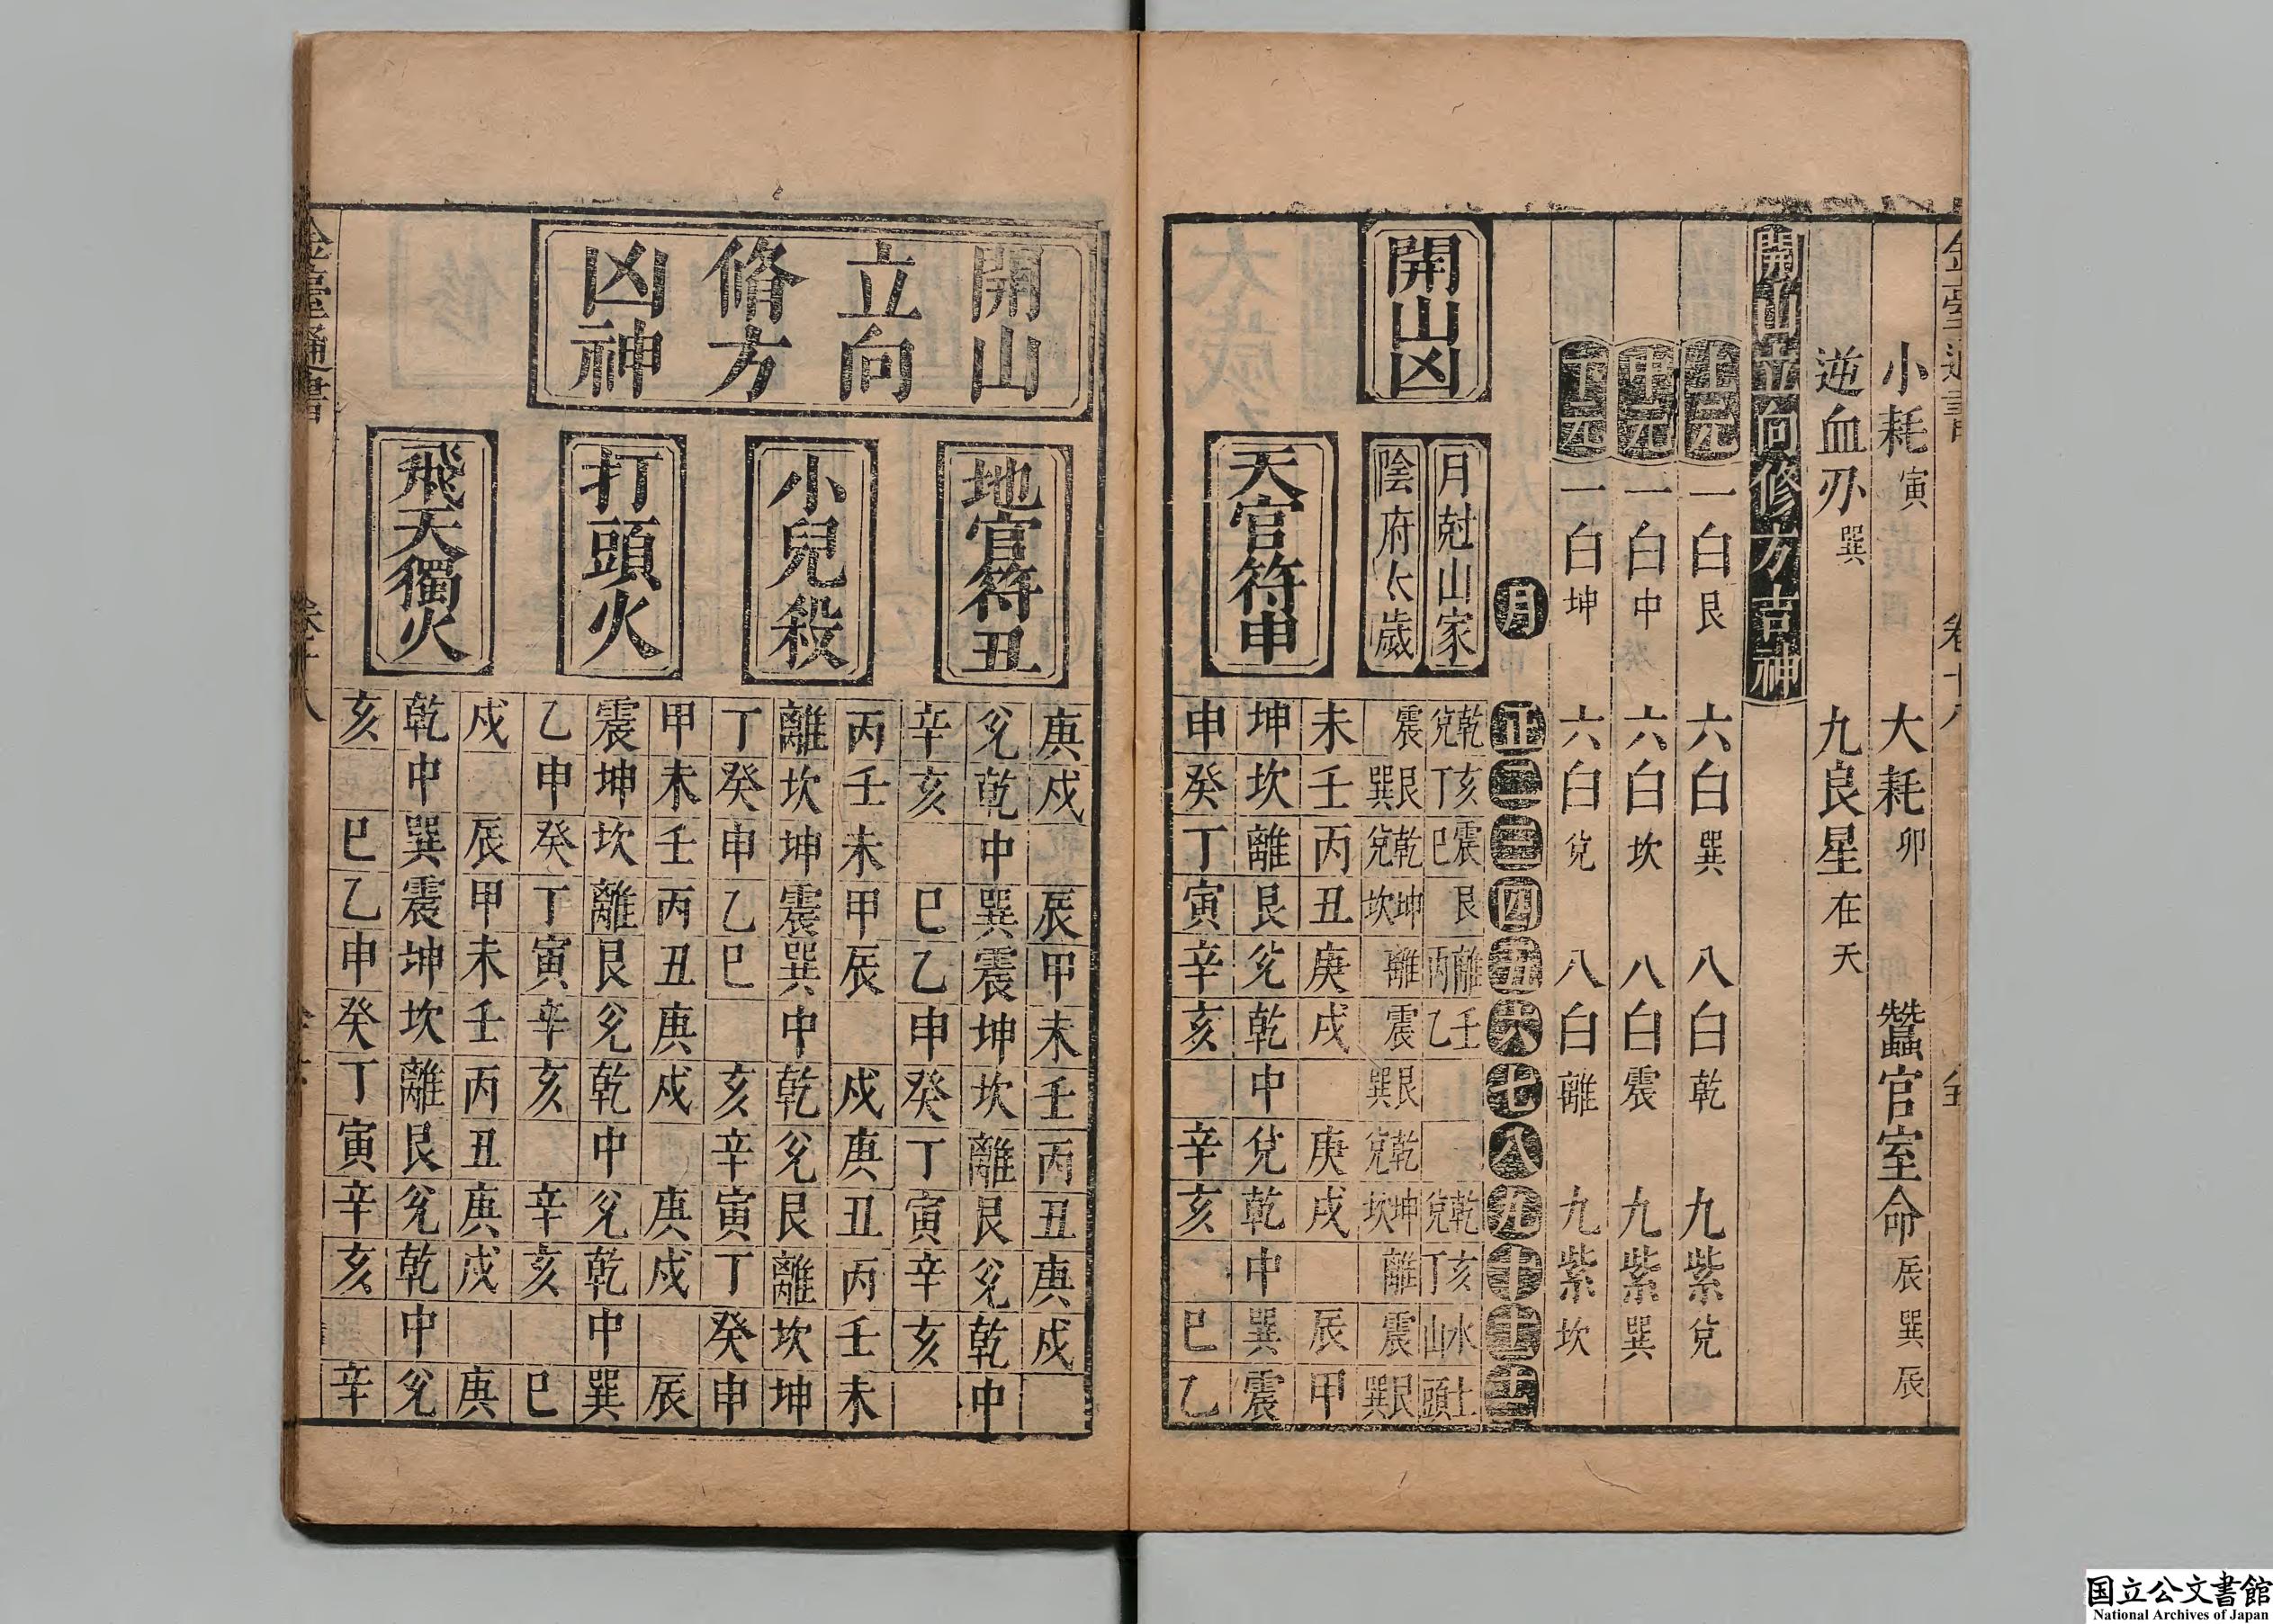 小耗寅　大耗卯　蠶官室命辰巽辰
逆血刃巽　九良星在天
開山立向修方吉神
上元　一白艮　六白巽　八白乾　九紫兌
中元　一白中　六白坎　八白震　九紫巽
下元　一白坤　六白兌　八白離　九紫坎
月　正　二　三　四　五　六　七　八　九　十　十一　十二
開山凶
月尅山家　乾兌　亥丁　震巳　艮　離丙　壬乙　　　乾兌　亥丁　水山　土頭
陰府太歲　震　艮巽　乾兌　坤坎　離　震　艮巽　乾兌　坤坎　離　震　艮巽
天官符申
未　壬　丙　丑　庚　戌　　庚　戌　　辰　甲
坤　坎　離　艮　兌　乾　中　兌　乾　中　巽　震
申　癸　丁　寅　辛　亥　　辛　亥　　巳　乙
開山
立向
脩方
凶神
地官符丑
庚　戌　　辰　甲　未　壬　丙　丑　庚　戌
兌　乾　中　巽　震　坤　坎　離　艮　兌　乾　中
辛　亥　　巳　乙　申　癸　丁　寅　辛　亥
小兒殺
丙　壬　未　甲　辰　　戌　庚　丑　丙　壬　未
離　坎　坤　震　巽　中　乾　兌　艮　離　坎　坤
丁　癸　申　乙　巳　　亥　辛　寅　丁　癸　申
打頭火
甲　未　壬　丙　丑　庚　戌　　庚　戌　　辰
震　坤　坎　離　艮　兌　乾　中　兌　乾　中　巽
乙　申　癸　丁　寅　辛　亥　　辛　亥　　巳
飛天獨火
戌　　辰　甲　未　壬　丙　丑　庚　戌　　庚
乾　中　巽　震　坤　坎　離　艮　兌　乾　中　兌
亥　　巳　乙　申　癸　丁　寅　辛　亥　　辛
臺通書　卷十八
国立公文書館
National Archives of Japan